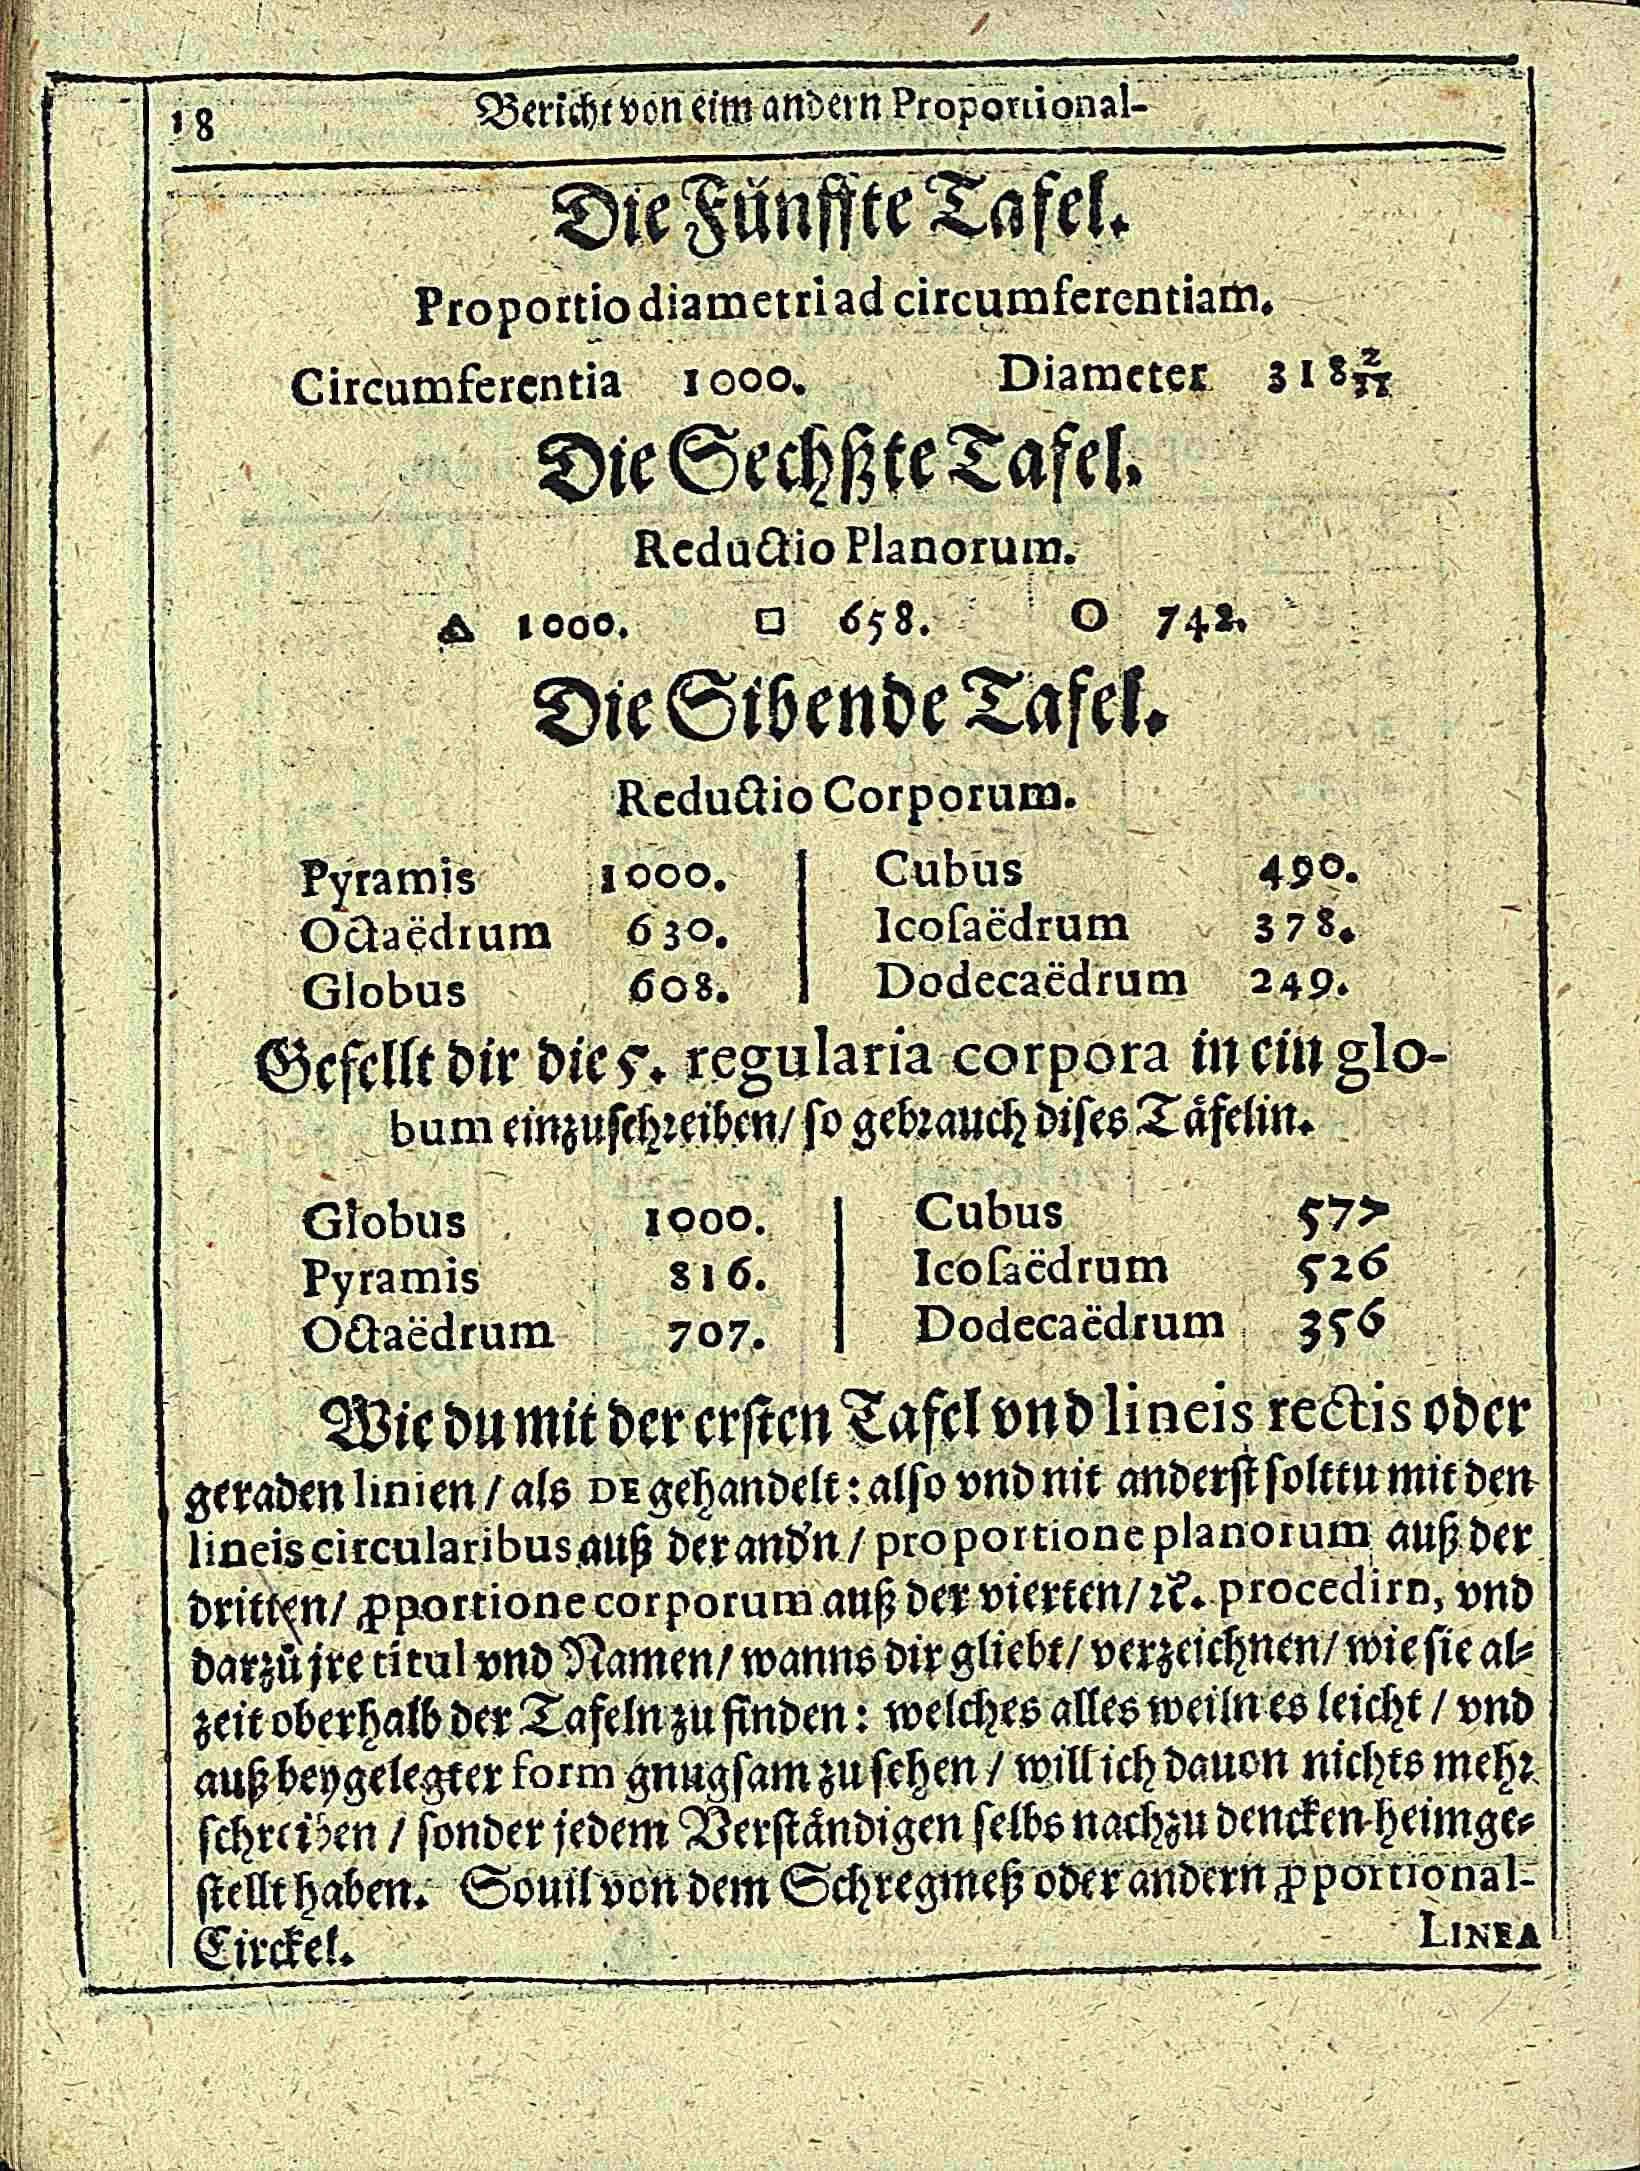 18 Bericht von eim andern Proportional-
Die Fünffte Tafel.
Proportio diametri ad circumferentiam.
Circumferentia 1000. Diameter 318 2/11
Die Sechßte Tafel.
Reductio Planorum.
△ 1000. □ 658. O 742.
Die Sibende Tafel.
Reductio Corporum.
Pyramis 1000. | Cubus 490.
Octaëdrum 630. | Icosaëdrum 378.
Globus 608. | Dodecaëdrum 249.
Gefellt dir die 5. regularia corpora in ein glo-
bum einzuschreiben / so gebrauch dises Täfelin.
Globus 1000. | Cubus 577
Pyramis 816. | Icosaëdrum 526
Octaëdrum 707. | Dodecaëdrum 356
Wie du mit der ersten Tafel vnd lineis rectis oder
geraden linien / als DE gehandelt: also vnd nit anderst solttu mit den
lineis circularibus auß der and'n / proportione planorum auß der
dritten / ꝓportione corporum auß der vierten / ꝛc. procedirn, vnd
darzů jre titul vnd Namen / wanns dir gliebt / verzeichnen / wie sie al-
zeit oberhalb der Tafeln zu finden: welches alles weiln es leicht / vnd
auß beygelegter form gnugsam zu sehen / will ich dauon nichts mehr
schreiben / sonder jedem Verständigen selbs nachzu dencken heimge-
stellt haben. Souil von dem Schregmeß oder andern ꝓportional-
Circkel.
LINEA